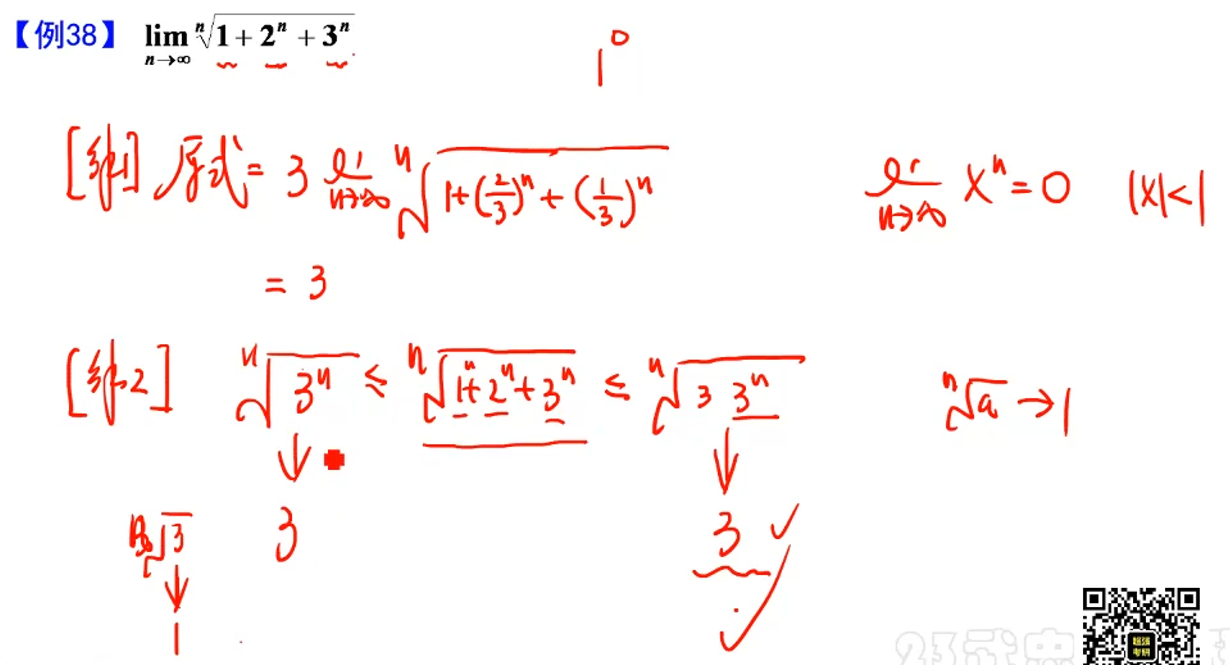 【例38】 lim n→∞ ⁿ√(1 + 2ⁿ + 3ⁿ)
1⁰
[解1] 原式 = 3 li n→∞ ⁿ√(1+(2/3)ⁿ+(1/3)ⁿ)
li n→∞ xⁿ = 0 |x|<1
= 3
[解2] ⁿ√(3ⁿ) ≤ ⁿ√(1ⁿ+2ⁿ+3ⁿ) ≤ ⁿ√(3 3ⁿ)
ⁿ√a → 1
↓ ↓
3 3 ✓
√3
↓
1